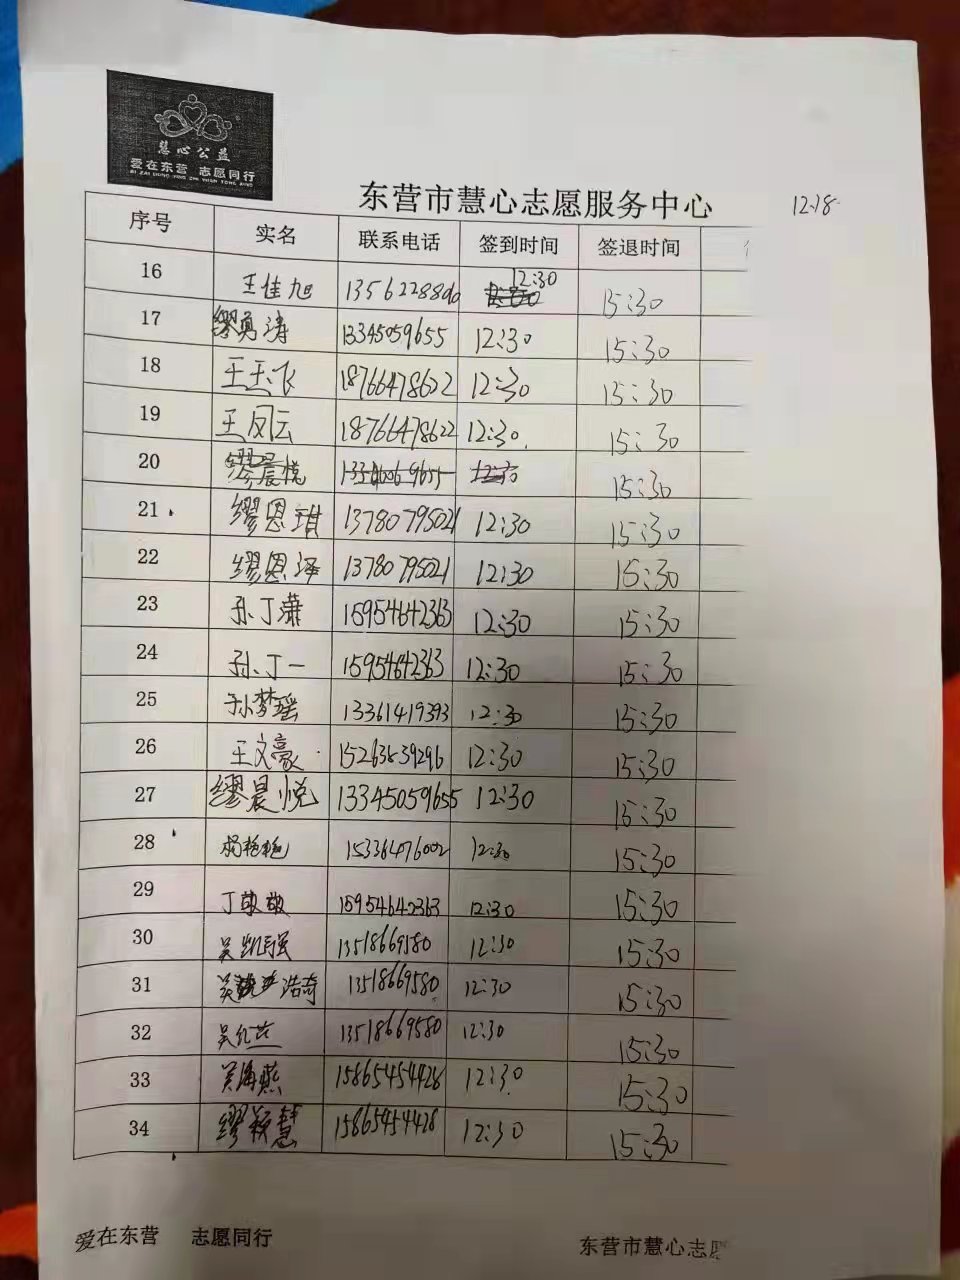 慧心公益
爱在东营 志愿同行
AI ZAI DONG YING ZHI YUAN TONG XING
东营市慧心志愿服务中心 12.18
序号 实名 联系电话 签到时间 签退时间
16 王佳旭 12:30 15:30
17 缪勇涛 13345059655 12:30 15:30
18 王玉飞 18766478622 12:30 15:30
19 王凤云 18766478622 12:30 15:30
20 缪晨悦 15:30
21 缪恩琪 13780795021 12:30 15:30
22 缪恩泽 13780795021 12:30 15:30
23 孙丁潇 15954642363 12:30 15:30
24 孙丁一 15954642363 12:30 15:30
25 孙梦瑶 13361419393 12:30 15:30
26 王文豪 15263839296 12:30 15:30
27 缪晨悦 13345059655 12:30 15:30
28 杨艳艳 15336476002 12:30 15:30
29 丁敬敬 15954642363 12:30 15:30
30 吴凯强 13518669580 12:30 15:30
31 吴浩奇 13518669580 12:30 15:30
32 13518669580 12:30 15:30
33 吴海燕 15865454428 12:30 15:30
34 缪颖慧 15865454428 12:30 15:30
爱在东营 志愿同行 东营市慧心志愿